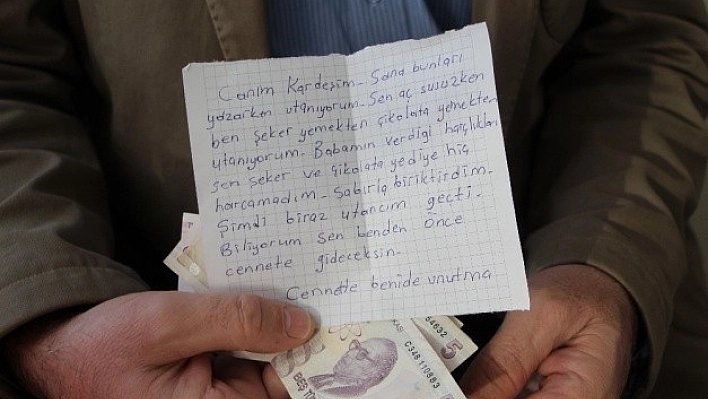 Canım Kardeşim. Sana bunları
yazarken utanıyorum. Sen aç susuzken
ben şeker yemekten çikolata yemekten
utanıyorum. Babamın verdiği harçlıkları
sen şeker ve çikolata yediye hiç
harcamadım. Sabırla biriktirdim.
Şimdi biraz utancım geçti.
Biliyorum sen benden önce
cennete gideceksin.
Cennette benide unutma
C348110983
5
BEŞ